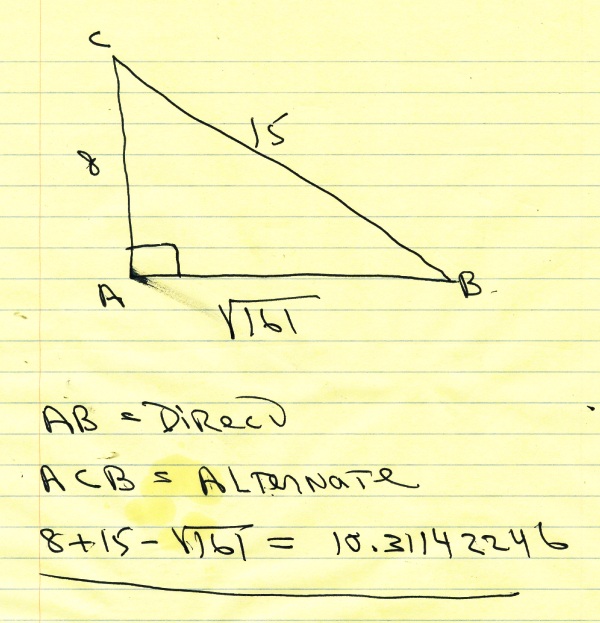 C
15
8
A
B
√161
AB = DIRECT
ACB = ALTERNATE
8+15-√161 = 10.31142246